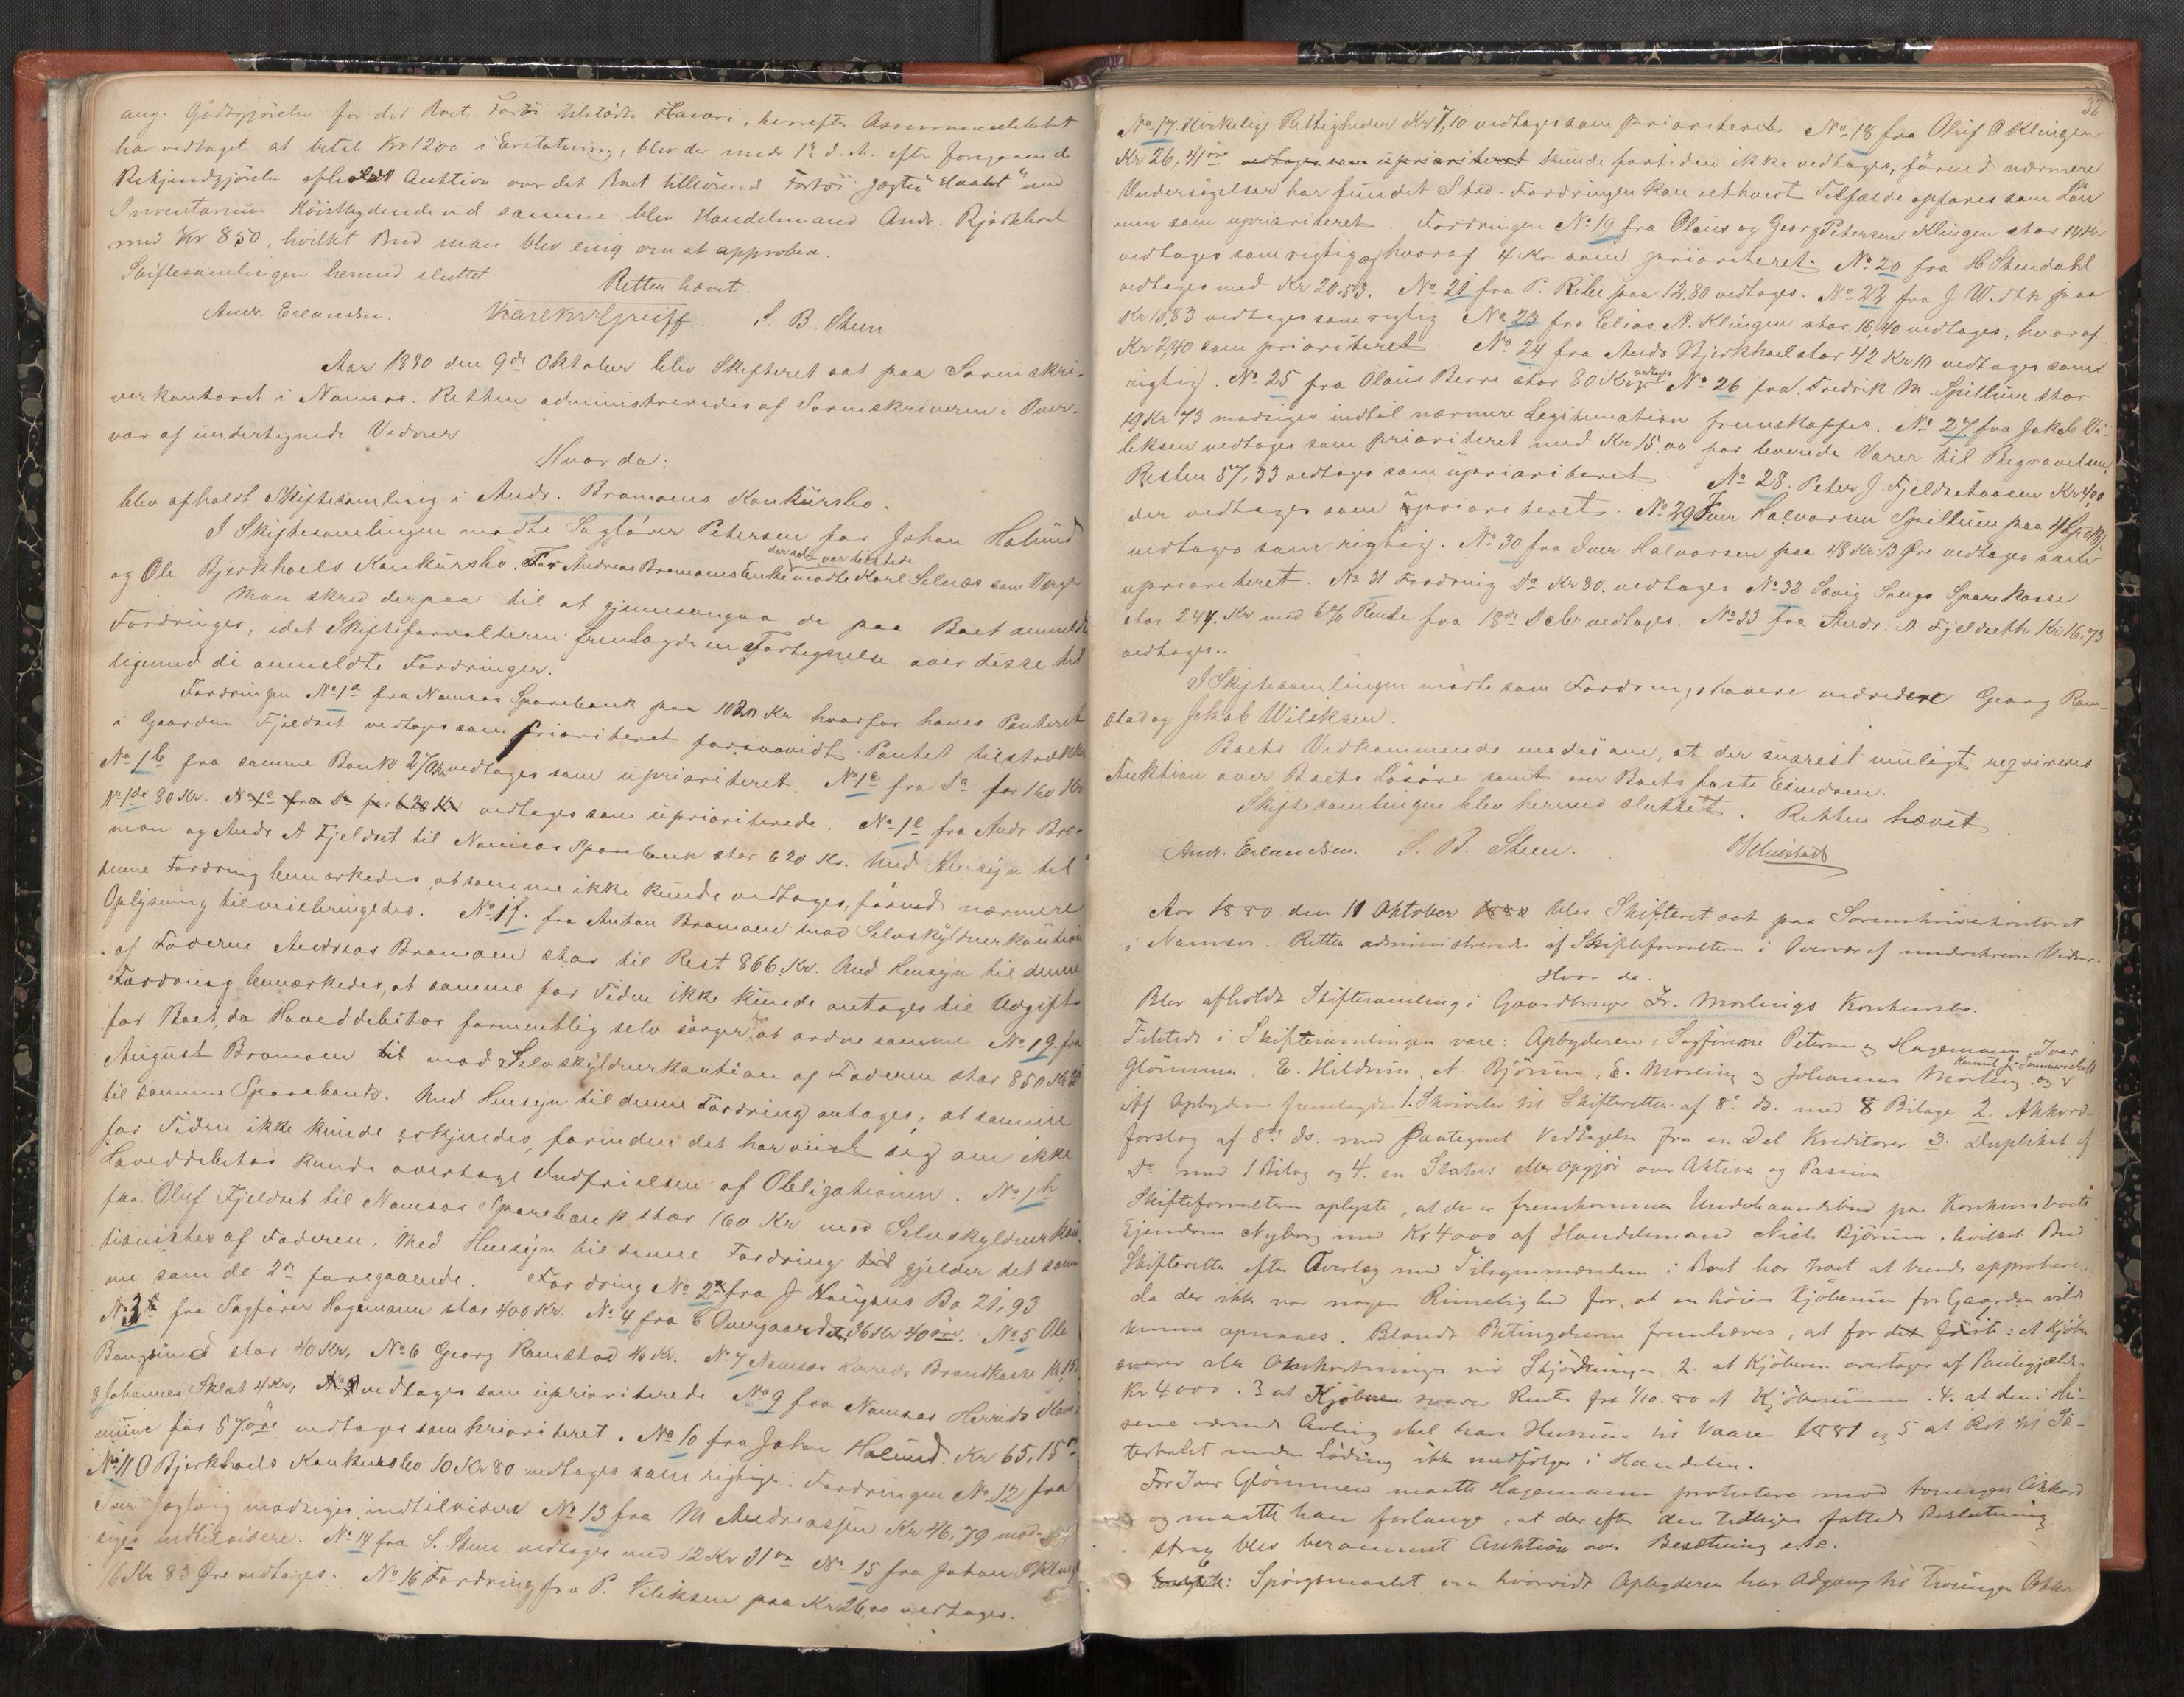 ang. Godtgjörelse for det Boets Fartöi tilstödte Havari, hvorefter Assuranceselskabet
har vedtaget at betale Kr 1200 i Erstatning, blev der under 1ste d. M. efter foregaaende
Bekjendtgjörelse afholdt Auktion over det Boet tilhörende Fartöi Jagten "Haabet" med
Inventarium. Höistbydende ved samme blev Handelsmand Andr. Bjerkhoel
med Kr 850, hvilket Bud man blev enig om at approbere.
Skiftesamlingen hermed sluttet.
Retten hævet.
Andr. Erlandsen. S. B. Steen
Aar 1880 den 9de Oktober blev Skifteret sat paa Sorenskri-
verkontoret i Namsos. Retten administreredes af Sorenskriveren i Over-
vær af undertegnede Vidner
Hvor da:
blev afholdt Skiftesamling i Andr. Bromoens Konkursbo.
I Skiftesamlingen mödte Sagförer Petersen for Johan Holund
og Ole Bjerkhoels Konkursbo. For Andreas Bromoens Enke der selv var tilstede mödte Karl Selnæs som Værge
Man skred derpaa til at gjennemgaa de paa Boet anmeldte
Fordringer, idet Skifteforvalteren fremlagde en Fortegnelse over disse til
ligemed de anmeldte Fordringer.
Fordringen No 1a fra Namsos Sparebank paa 1020 Kr hvorfor haves Panteret
i Gaarden Fjeldset vedtages som prioriteret forsaavidt Pantet tilstrækker
No 1b fra samme Bank 270 Kr vedtages som uprioriteret. No 1c fra Do for 160 Kr
No 1d 80 Kr. No 1e fra Do for 620 Kr vedtages som uprioriterede. No 1e fra Andr Bro-
moen og Andr A Fjeldset til Namsos Sparebank stor 620 Kr. Med Hensyn til
denne Fordring bemærkedes, at samme ikke kunde vedtages, förend nærmere
Oplysning tilveiebringedes. No 1f. fra Anton Bromoen mod Selvskyldnerkaution
af Faderen Andreas Bromoen stor til Rest 866 Kr. Med Hensyn til denne
Fordring bemærkedes, at samme for Tiden ikke kunde antages til Udgift
for Boet, da Hoveddebitor formentlig selv sörger for at ordne samme No 1g. fra
August Bromoen til mod Selvskyldnerkaution af Faderen stor 850 Kr
til samme Sparebank. Med Hensyn til denne Fordring antages, at samme
for Tiden ikke kunde erkjendes, forinden det har viist sig om ikke
Hoveddebitor kunde overtage Indfrielsen af Obligationen. No 1h
fra Oluf Fjeldset til Namsos Sparebank stor 160 Kr mod Selvskyldnerkau-
tionister af Faderen. Med Hensyn til denne Fordring til gjelder det sam-
me som de 2de foregaaende. Fordring No 2 fra J Havigs Bo 21,93
No 3 fra Sagförer Hagemann stor 400 Kr. No 4 fra C Overgaard 36 Kr 40 öre. No 5 Ole
Bangsund stor 40 Kr, No 6 Georg Ramstad 40 Kr. No 7 Namsos Herreds Brandkasse
8 Johannes Sklet 4 Kr, vedtages som uprioriterede No 9 fra Namsos Herreds Kom-
mune for 57 öre vedtages som prioriteret. No 10 fra Johan Holund Kr 65,15
No 11 O Bjerkhoels Konkursbo 10 Kr 80 vedtages som rigtige. Fordringen No 12 fra
Iver Jogtvig modsiges indtilvidere No 13 fra M Andreassen Kr 46,79 mod-
siges indtilvidere. No 14 fra S. Steen vedtages med 12 Kr 31 öre No 15 fra Johan O Klinge
16 Kr 83 Öre vedtages. No 16 Fordring fra P. Vileksen paa Kr 26,00 vedtages.
32
No 17. Kirkelige Rettigheder Kr 7,10 vedtages som prioriterede No 18 fra Oluf P Klingen
Kr 26,41 öre vedtages som uprioriteret kunde fortiden ikke vedtages, förend nærmere
Undersögelser har fundet Sted. Fordringen kan iethvert Tilfælde opföres som Lön
men som uprioriteret. Fordringen No 19 fra Olaus og Georg Petersen Klingen stor 14 Kr
vedtages som rigtig, og hvoraf 4 Kr som prioriteret. No 20 fra H Stendahl
vedtages med Kr 20,53. No 21 fra P. Ribe paa 12,80 vedtages. No 22 fra J Witth paa
Kr 15,83 vedtages som rigtig No 23 fra Elias A. Klingen stor 16,40 vedtages, hvoraf
Kr 2,40 som prioriteret. No 24 fra Andr Bjerkhoel stor 42 Kr 10 vedtages som
rigtig. No 25 fra Olaus Berre stor 80 Kr vedtages No 26 fra Fredrik M. Spillum stor
19 Kr 73 modsiges indtil nærmere Legitimation fremskaffes. No 27 fra Jakob Vi-
leksen vedtages som prioriteret med Kr 15.00 for leverede Varer til Begravelsen,
Resten 57,33 vedtages som uprioriteret. No 28. Peter J. Fjeldsetaasen Kr 4,00
der vedtages som uprioriteret. No 29 Iver Halvorsen Spillum paa
vedtages som rigtig. No 30 fra Iver Halvorsen paa 48 Kr 13 Öre vedtages som
uprioriteret. No 31 Fordring Do Kr 80. vedtages No 32 Sævig Sogns Sparekasse
stor 244 Kr med 6% Rente fra 18de Debr vedtages. No 33 fra Andr. A Fjeldseth Kr 16,73
vedtages..
I Skiftesamlingen mödte som Fordringshavere videre Georg Ram-
stad og Jakob Wileksen.
Boets Vedkommende enedes om, at der snarest muligt requireres
Auktion over Boets Lösöre samt over Boets faste Eiendom.
Skiftesamlingen blev hermed sluttet. Retten hævet
Andr. Erlandsen. S. B. Steen.
Aar 1880 den 11 Oktober 1880 blev Skifteret sat paa Sorenskriverkontoret
i Namsos. Retten administreredes af Skifteforvalteren i Overvær af underskrevne Vidner.
Hvor da.
Blev afholdt Skiftesamling i Gaardbruger Fr. Mörlings Konkursbo.
Tilstede i Skiftesamlingen vare: Opbyderen, Sagförerne Petersen og Hagemann, Iver
Glömmen, E. Hildrum, N. Björum, E. Mörling og Johannes Mörling og
Af Opbyderen fremlagdes 1. Skrivelse til Skifteretten af 8de ds. med 8 Bilage 2. Akkord-
forslag af 8de ds. med paategnet Vedtagelse fra en Del Kreditorer 3. Duplikat af
Do med 1 Bilag og 4. en Status eller Opgjör over Aktiva og Passiva.
Skifteforvalteren oplyste, at der er fremkommen Underhaandsbud paa Konkursboets
Eiendom Nyborg med Kr 4000 af Handelsmand Niels Björum, hvilket Bud
Skifteretten efter Overlæg med Tilsynsmændene i Boet har troet at burde approbere,
da der ikke var nogen Rimelighed for, at en höiere Kjöbesum for Gaarden vilde
kunne opnaaes. Blandt Betingelserne fremhæves, at for det förste: at Kjöber
svarer alle Omkostninger ved Skjödningen 2. at Kjöberen overtager af Pantegjæld
Kr 4000. 3 at Kjöberen svarer Rente fra 1/10.80 af Kjöbesummen. 4. at den i Hu-
sene værende Avling skal have Husrum til Vaaren 1881 og 5 at Ret til Sæ-
terbolet under Löding ikke medfölger i Handelen.
For Iver Glömmen maatte Hagemann protestere mod tvungen Akkord
og maatte han forlange, at der efter den tidligere fattede Beslutning
strax blev berammet Auktion over Besætning etc.
Spörgsmaalet om hvorvidt Opbyderen har Adgang til tvungen Akko